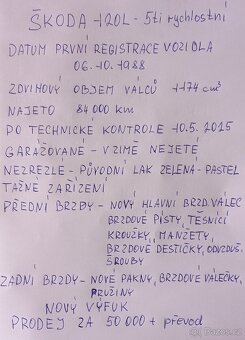 ŠKODA -120L - 5ti rychlostní
DATUM PRVNÍ REGISTRACE VOZIDLA
06.10.1988
ZDVIHOVÝ OBJEM VÁLCŮ 1174 cm³
NAJETO 84 000 km
PO TECHNICKÉ KONTROLE 10.5.2015
GARÁŽOVANÉ - V ZIMĚ NEJETÉ
NEZREZLÉ - PŮVODNÍ LAK ZELENÁ - PASTEL
TAŽNÉ ZAŘÍZENÍ
PŘEDNÍ BRZDY - NOVÝ HLAVNÍ BRZD. VÁLEC
BRZDOVÉ PÍSTY, TĚSNÍCÍ
KROUŽKY, MANŽETY,
BRZDOVÉ DESTIČKY, ODVZDUŠ.
ŠROUBY
ZADNÍ BRZDY - NOVÉ PAKNY, BRZDOVÉ VÁLEČKY,
PRUŽINY
NOVÝ VÝFUK
PRODEJ ZA 50 000 + převod